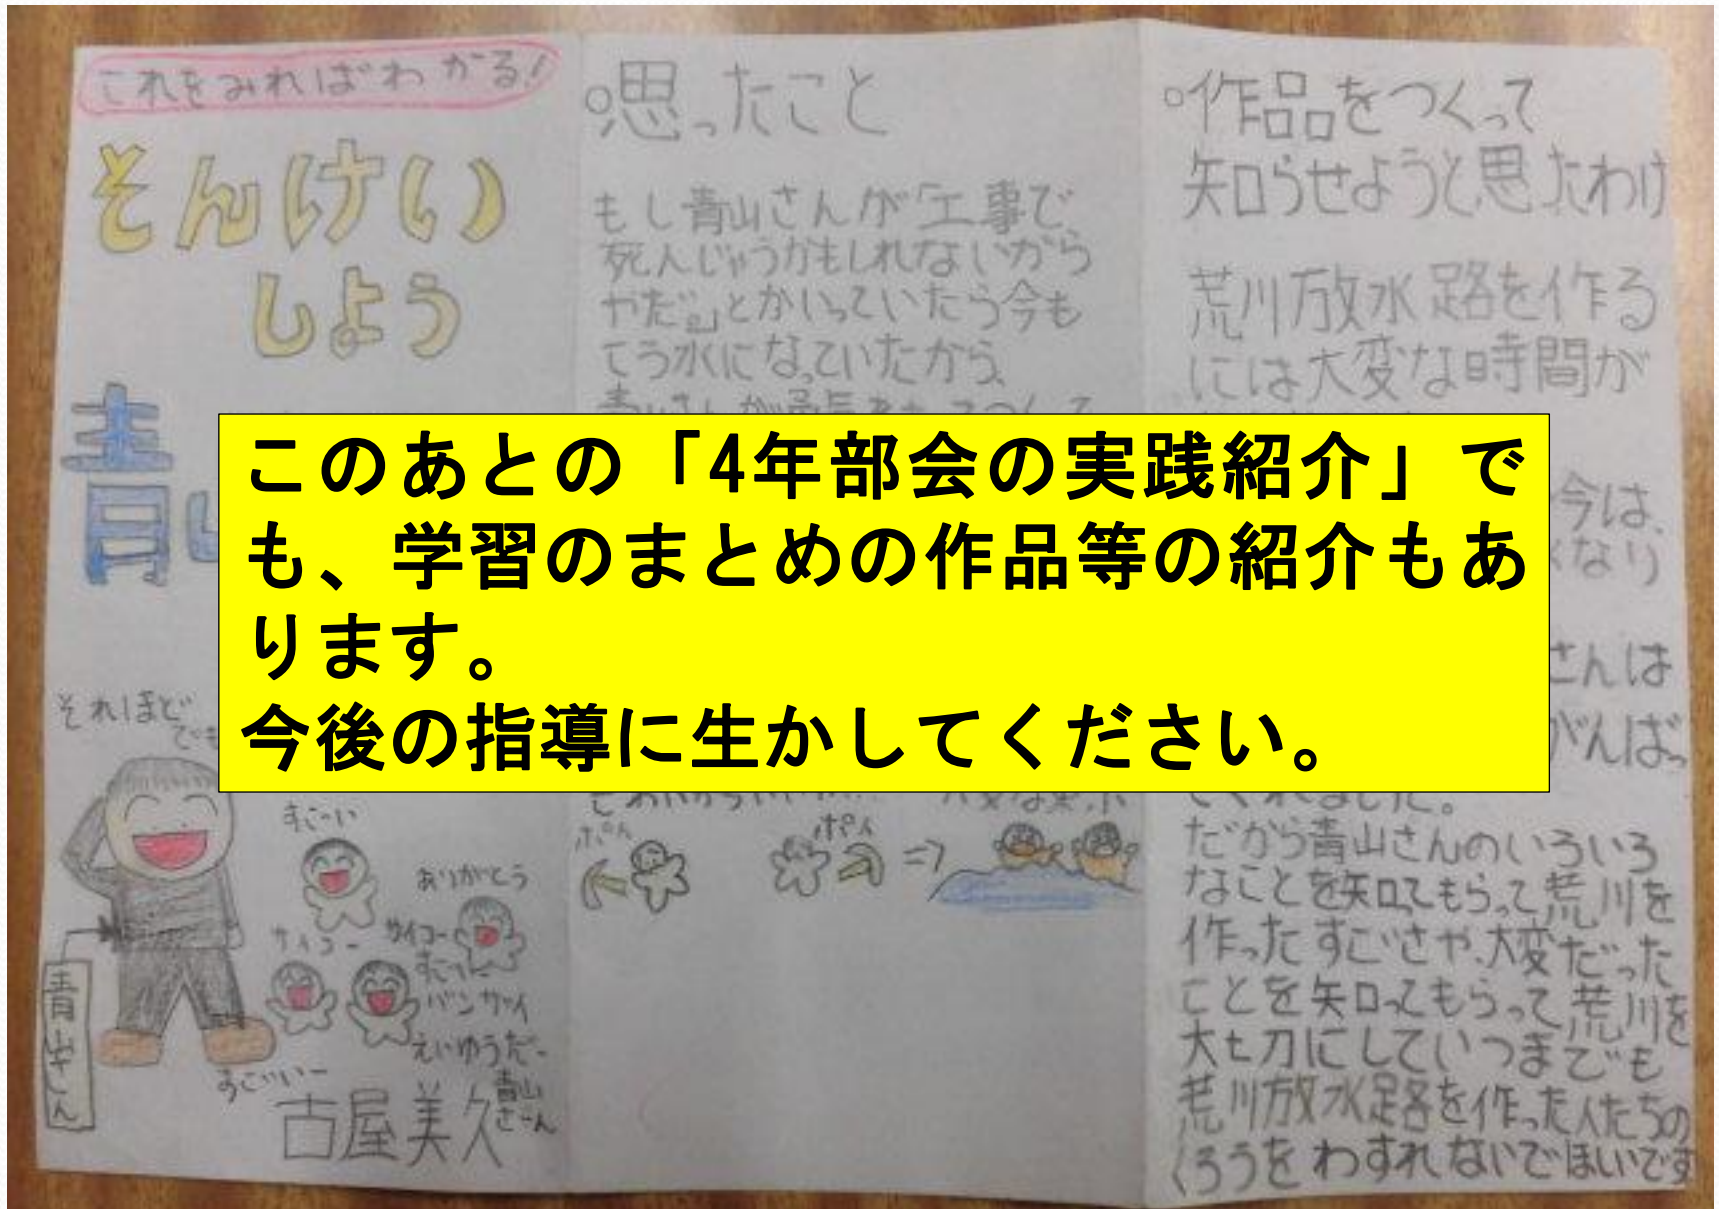 これをみればわかる!
そんけい
しよう
青山
それほど
でも
すごーい
ありがとう
サイコー
サイコー
すごーい
バンザイ
えいゆうだー
青山
さーん
すごいいー
青山さん
古屋美久
○思ったこと
もし青山さんが「工事で
死んじゃうかもしれないから
やだ。」とかいっていたら今も
こう水になっていたから、
ポイ
ポイ
⇒
○作品をつくって
知らせようと思たわけ
荒川放水路を作る
には大変な時間が
今は、
くなり
さんは
がんばっ
てくれました。
だから青山さんのいろいろ
なことを知ってもらって荒川を
作ったすごいさや、大変だった
ことを知ってもらって荒川を
大切にしていつまでも
荒川放水路を作った人たちの
くろうをわすれないでほしいです
このあとの「4年部会の実践紹介」で
も、学習のまとめの作品等の紹介もあ
ります。
今後の指導に生かしてください。